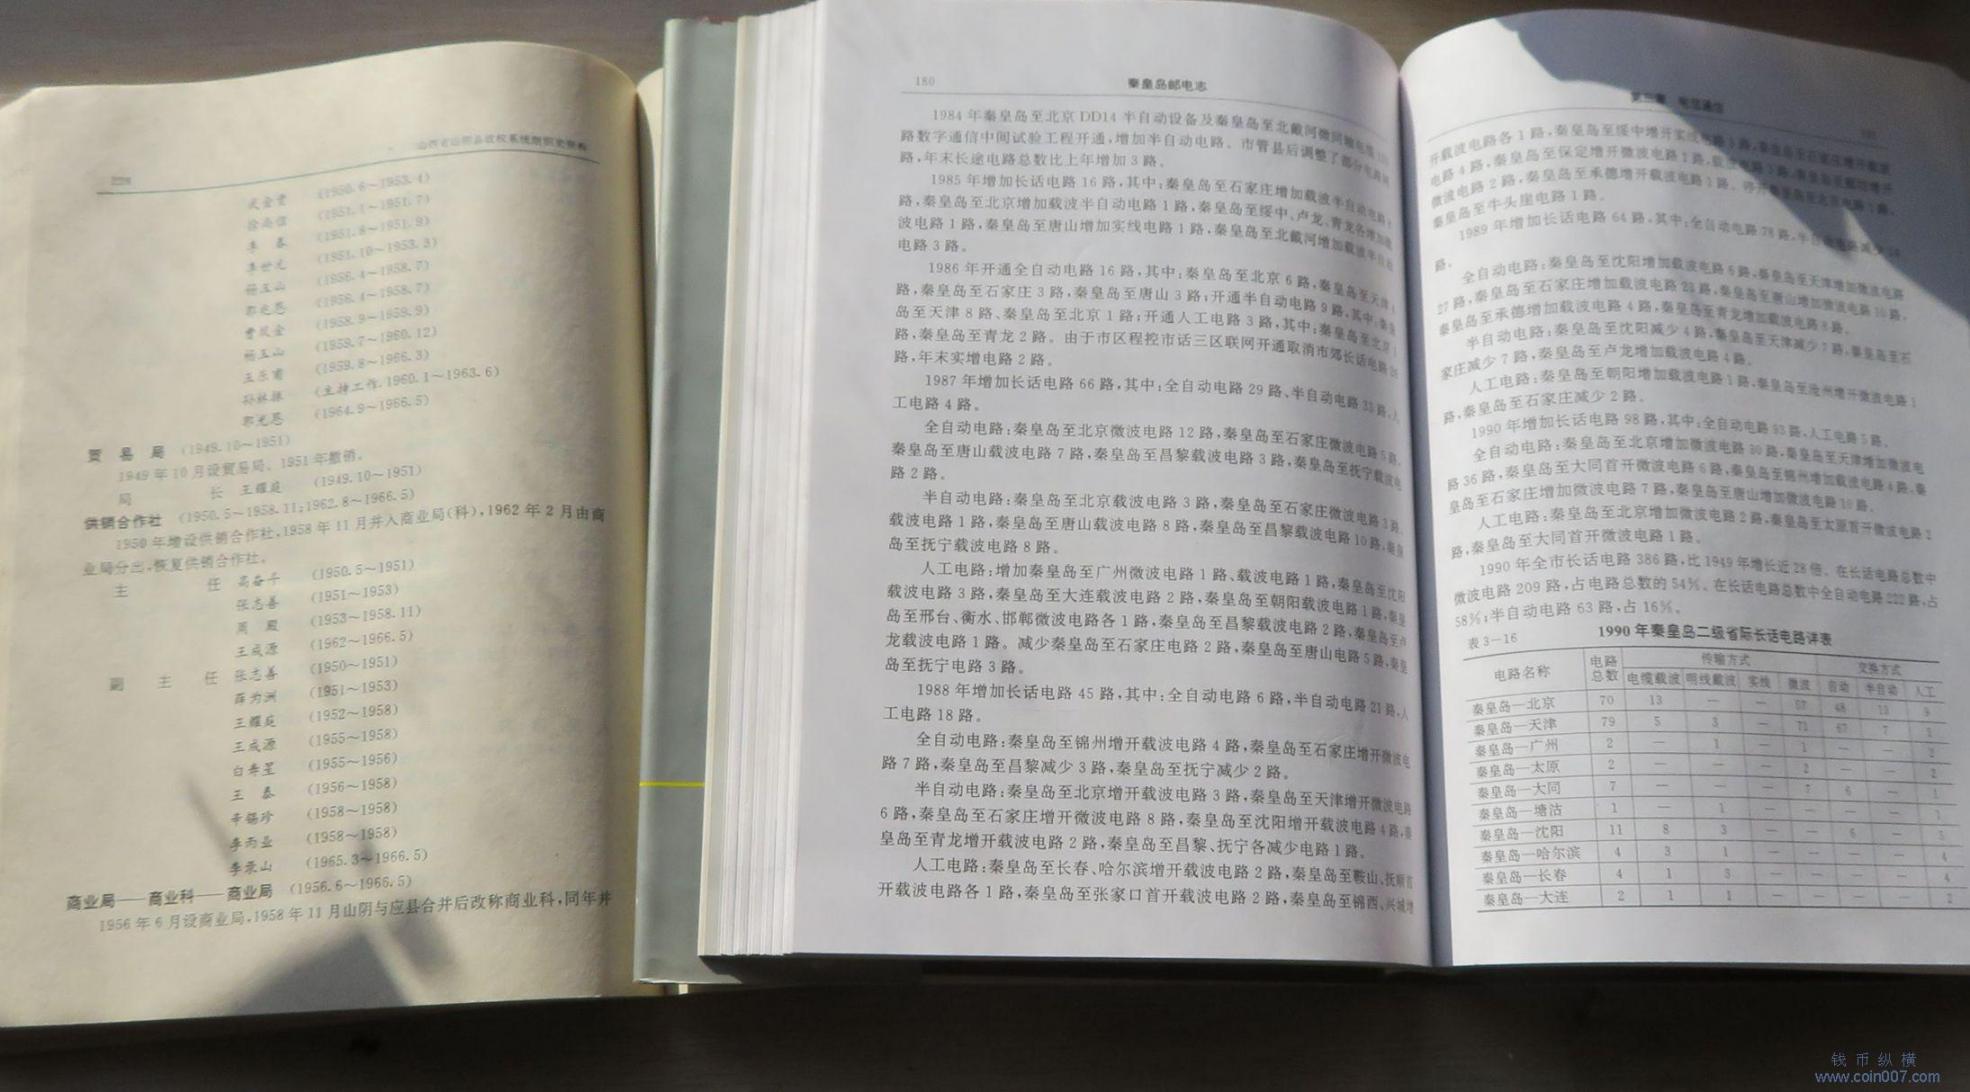 228
山西省山阴县政权系统组织史资料
武金贵 (1950.6~1953.4)
(1951.1~1951.7)
李 春 (1951.8~1951.9)
李世元 (1951.10~1953.3)
杨玉山 (1956.4~1958.7)
郭光恩 (1956.4~1958.7)
曹俊金 (1958.9~1959.9)
杨玉山 (1959.7~1960.12)
(1959.8~1966.3)
孙林操 (主持工作,1960.1~1963.6)
郭光恩 (1964.9~1966.5)
贸 易 局 (1949.10~1951)
1949年10月设贸易局、1951年撤销。
局 长 王耀庭 (1949.10~1951)
供销合作社 (1950.5~1958.11;1962.8~1966.5)
1950年增设供销合作社,1958年11月并入商业局(科),1962年2月由商
业局分出,恢复供销合作社。
主 任 高奋斗 (1950.5~1951)
张志善 (1951~1953)
周 殿 (1953~1958.11)
王成源 (1962~1966.5)
副 主 任 张志善 (1950~1951)
薛为洲 (1951~1953)
王耀庭 (1952~1958)
王成源 (1955~1958)
白寿星 (1955~1956)
王 泰 (1956~1958)
辛锡珍 (1958~1958)
李而业 (1958~1958)
李录山 (1965.3~1966.5)
商业局——商业科——商业局 (1956.6~1966.5)
1956年6月设商业局,1958年11月山阴与应县合并后改称商业科,同年并
180
秦皇岛邮电志
1984年秦皇岛至北京DD14半自动设备及秦皇岛至北戴河微同轴电缆
路数字通信中间试验工程开通,增加半自动电路。市管县后调整了部分电路
路,年末长途电路总数比上年增加3路。
1985年增加长话电路16路,其中:秦皇岛至石家庄增加载波半自动电路
路,秦皇岛至北京增加载波半自动电路1路,秦皇岛至绥中、卢龙、青龙各增加载
波电路1路,秦皇岛至唐山增加实线电路1路,秦皇岛至北戴河增加载波半自动
电路3路。
1986年开通全自动电路16路,其中:秦皇岛至北京6路,秦皇岛至天津
路,秦皇岛至石家庄3路,秦皇岛至唐山3路;开通半自动电路9路,其中:秦皇
岛至天津8路、秦皇岛至北京1路;开通人工电路3路,其中:秦皇岛至北京1
路,秦皇岛至青龙2路。由于市区程控市话三区联网开通取消市郊长话电路
路,年末实增电路2路。
1987年增加长话电路66路,其中:全自动电路29路、半自动电路33路,人
工电路4路。
全自动电路:秦皇岛至北京微波电路12路,秦皇岛至石家庄微波电路5路,
秦皇岛至唐山载波电路7路,秦皇岛至昌黎载波电路3路,秦皇岛至抚宁载波电
路2路。
半自动电路:秦皇岛至北京载波电路3路,秦皇岛至石家庄微波电路3路、
载波电路1路,秦皇岛至唐山载波电路8路,秦皇岛至昌黎载波电路10路,秦皇
岛至抚宁载波电路8路。
人工电路:增加秦皇岛至广州微波电路1路、载波电路1路,秦皇岛至沈阳
载波电路3路,秦皇岛至大连载波电路2路,秦皇岛至朝阳载波电路1路,秦皇
岛至邢台、衡水、邯郸微波电路各1路,秦皇岛至昌黎载波电路2路,秦皇岛至卢
龙载波电路1路。减少秦皇岛至石家庄电路2路,秦皇岛至唐山电路5路,秦皇
岛至抚宁电路3路。
1988年增加长话电路45路,其中:全自动电路6路,半自动电路21路,人
工电路18路。
全自动电路:秦皇岛至锦州增开载波电路4路,秦皇岛至石家庄增开微波电
路7路,秦皇岛至昌黎减少3路,秦皇岛至抚宁减少2路。
半自动电路:秦皇岛至北京增开载波电路3路,秦皇岛至天津增开微波电路
6路,秦皇岛至石家庄增开微波电路8路,秦皇岛至沈阳增开载波电路4路,秦
皇岛至青龙增开载波电路2路,秦皇岛至昌黎、抚宁各减少电路1路。
人工电路:秦皇岛至长春、哈尔滨增开载波电路2路,秦皇岛至鞍山、抚顺首
开载波电路各1路,秦皇岛至张家口首开载波电路2路,秦皇岛至锦西、兴城增
第三章 电信通信
开载波电路各1路,秦皇岛至绥中增开实线电路
电路4路,秦皇岛至保定增开微波电路1路,
微波电路2路,秦皇岛至承德增开载波电路1路。
秦皇岛至牛头崖电路1路。
1989年增加长话电路64路,其中:全自动电路78路,半自动电路减少14
路。
全自动电路:秦皇岛至沈阳增加载波电路6路,秦皇岛至天津增加微波电路
27路,秦皇岛至石家庄增加载波电路23路,秦皇岛至唐山增加微波电路10路,
秦皇岛至承德增加载波电路4路,秦皇岛至青龙增加载波电路8路。
半自动电路:秦皇岛至沈阳减少4路,秦皇岛至天津减少7路,秦皇岛至石
家庄减少7路,秦皇岛至卢龙增加载波电路4路。
人工电路:秦皇岛至朝阳增加载波电路1路,秦皇岛至沧州增开微波电路1
路,秦皇岛至石家庄减少2路。
1990年增加长话电路98路,其中:全自动电路93路,人工电路5路。
全自动电路:秦皇岛至北京增加微波电路30路,秦皇岛至天津增加微波电
路36路,秦皇岛至大同首开微波电路6路,秦皇岛至锦州增加载波电路4路,秦
皇岛至石家庄增加微波电路7路,秦皇岛至唐山增加微波电路10路。
人工电路:秦皇岛至北京增加微波电路2路,秦皇岛至太原首开微波电路2
路,秦皇岛至大同首开微波电路1路。
1990年全市长话电路386路,比1949年增长近28倍。在长话电路总数中
微波电路209路,占电路总数的54%。在长话电路总数中全自动电路222路,占
58%;半自动电路63路,占16%。
表3—16 1990年秦皇岛二级省际长话电路详表
电路名称 电路总数 传输方式 交换方式
电缆载波 明线载波 实线 微波 自动 半自动 人工
秦皇岛—北京 70 13 — — 57 48 13 9
秦皇岛—天津 79 5 3 — 71 67 7 5
秦皇岛—广州 2 — 1 — 1 — — 2
秦皇岛—太原 2 — — — 2 — — 2
秦皇岛—大同 7 — — — 7 6 — 1
秦皇岛—塘沽 1 — 1 — — — — 1
秦皇岛—沈阳 11 8 3 — — 6 — 5
秦皇岛—哈尔滨 4 3 1 — — — — 4
秦皇岛—长春 4 1 3 — — — — 4
秦皇岛—大连 2 1 1 — — — — 2
钱币纵横
www.coin007.com